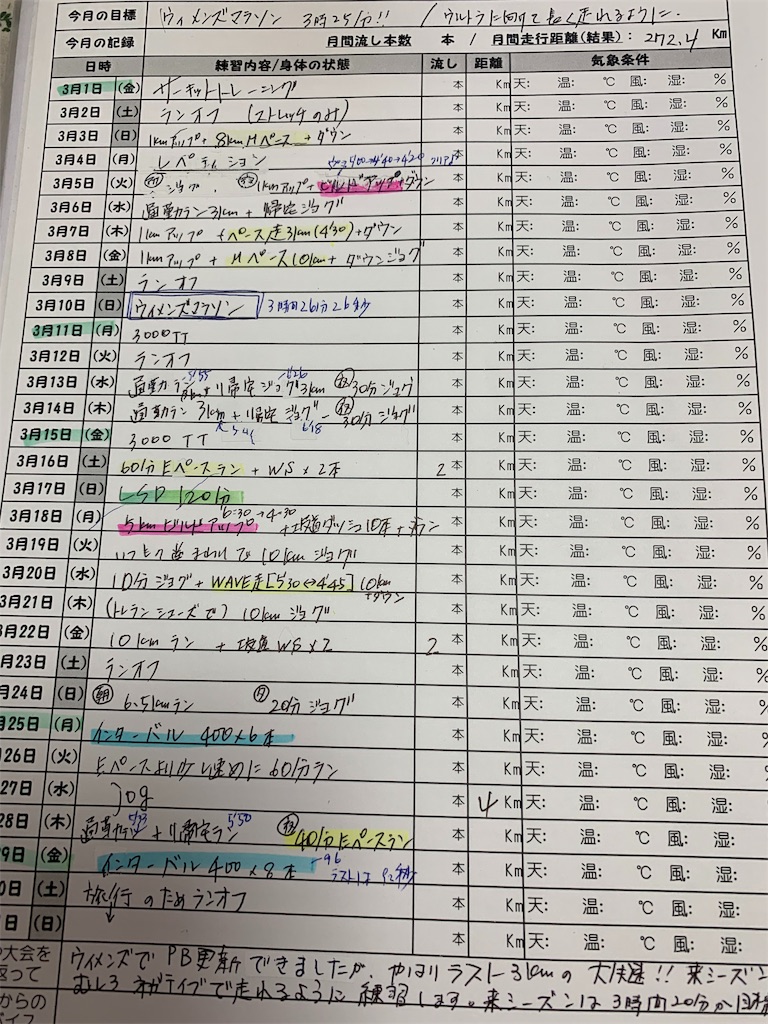 今月の目標 ウィメンズマラソン 3時間25分!! / ウルトラに向けて長く走れるように.
今月の記録 月間流し本数 本 / 月間走行距離(結果): 272.4 Km
日時 練習内容/身体の状態 流し 距離 気象条件
3月1日 (金) サーキットトレーニング 本 Km 天: 温: ℃ 風: 湿: %
3月2日 (土) ランオフ (ストレッチのみ) 本 Km 天: 温: ℃ 風: 湿: %
3月3日 (日) 1kmアップ + 8km Mペース + ダウン 本 Km 天: 温: ℃ 風: 湿: %
3月4日 (月) レペティション 本 Km 天: 温: ℃ 風: 湿: %
3月5日 (火) 朝 ジョグ. 1kmアップ + ビルドアップ + ダウン 本 Km 天: 温: ℃ 風: 湿: %
3月6日 (水) 通勤ラン3km + 帰宅ジョグ 本 Km 天: 温: ℃ 風: 湿: %
3月7日 (木) 1kmアップ + ペース走3km(4'30) + ダウン 本 Km 天: 温: ℃ 風: 湿: %
3月8日 (金) 1kmアップ + Mペース10km + ダウンジョグ 本 Km 天: 温: ℃ 風: 湿: %
3月9日 (土) ランオフ 本 Km 天: 温: ℃ 風: 湿: %
3月10日 (日) ウィメンズマラソン 3時間26分26秒 本 Km 天: 温: ℃ 風: 湿: %
3月11日 (月) 3000TT 本 Km 天: 温: ℃ 風: 湿: %
3月12日 (火) ランオフ 本 Km 天: 温: ℃ 風: 湿: %
3月13日 (水) 通勤ラン + 帰宅ジョグ3km 夜 30分ジョグ 本 Km 天: 温: ℃ 風: 湿: %
3月14日 (木) 通勤ラン 3km + 帰宅ジョグ 夜 30分ジョグ 本 Km 天: 温: ℃ 風: 湿: %
3月15日 (金) 3000 TT 本 Km 天: 温: ℃ 風: 湿: %
3月16日 (土) 60分Eペースラン + WS × 2本 2 本 Km 天: 温: ℃ 風: 湿: %
3月17日 (日) LSD 120分 本 Km 天: 温: ℃ 風: 湿: %
6:30→4:30
3月18日 (月) 5kmビルドアップ + 坂道ダッシュ10本 + ラン 本 Km 天: 温: ℃ 風: 湿: %
3月19日 (火) いつもと逆まわりで10kmジョグ 本 Km 天: 温: ℃ 風: 湿: %
3月20日 (水) 10分ジョグ + WAVE走[5'30⇔4'45] 10km + ダウン 本 Km 天: 温: ℃ 風: 湿: %
3月21日 (木) (トレランシューズで) 10kmジョグ 本 Km 天: 温: ℃ 風: 湿: %
3月22日 (金) 10kmラン + 坂道WS×2 2 本 Km 天: 温: ℃ 風: 湿: %
月23日 (土) ランオフ 本 Km 天: 温: ℃ 風: 湿: %
月24日 (日) 朝 6.5kmラン 夕 20分ジョグ 本 Km 天: 温: ℃ 風: 湿: %
月25日 (月) インターバル 400×6本 本 Km 天: 温: ℃ 風: 湿: %
26日 (火) Eペースより少し速めに60分ラン 本 Km 天: 温: ℃ 風: 湿: %
27日 (水) Jog 本 4 Km 天: 温: ℃ 風: 湿:
28日 (木) 通勤ラン + 帰宅ラン 5'50 夜 40分Eペースラン 本 Km 天: 温: ℃ 風: 湿:
9日 (金) インターバル 400×8本 -96 ラストは92秒 本 Km 天: 温: ℃ 風: 湿:
0日 (土) 旅行のためランオフ 本 Km 天: 温: ℃ 風: 湿:
1日 (日) ↓ 本 Km 天: 温: ℃ 風: 湿:
大会を
返って ウィメンズでPB更新できましたが、やはりラスト3kmの大失速!! 来シーズン
むしろネガティブで走れるように練習します。来シーズンは3時間20分が目標
からの